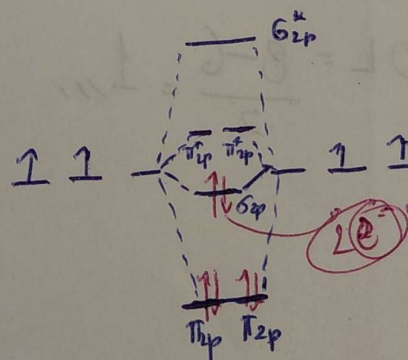 σ*2p
π*2p π*2p
σ2p
2e⁻
π2p π2p